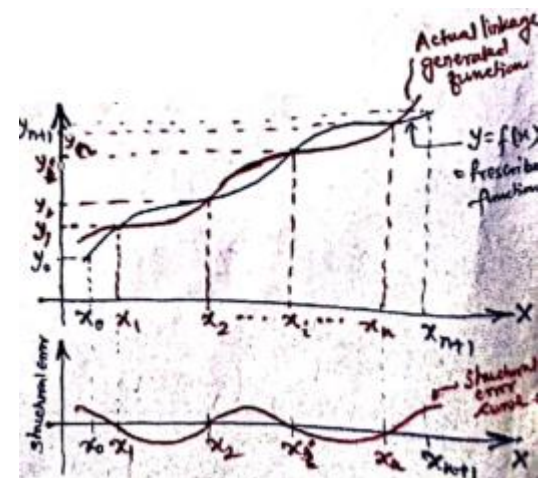 Actual linkage
generated
function
yₙ₊₁
yₙ
y = f(x)
= Prescribed
function
yᵢ
y₂
y₁
y₀
x₀ x₁ x₂ ..... xᵢ .... xₙ xₙ₊₁ X
Structural error
Structural
error
curve
x₀ x₁ x₂ xᵢ xₙ xₙ₊₁ X